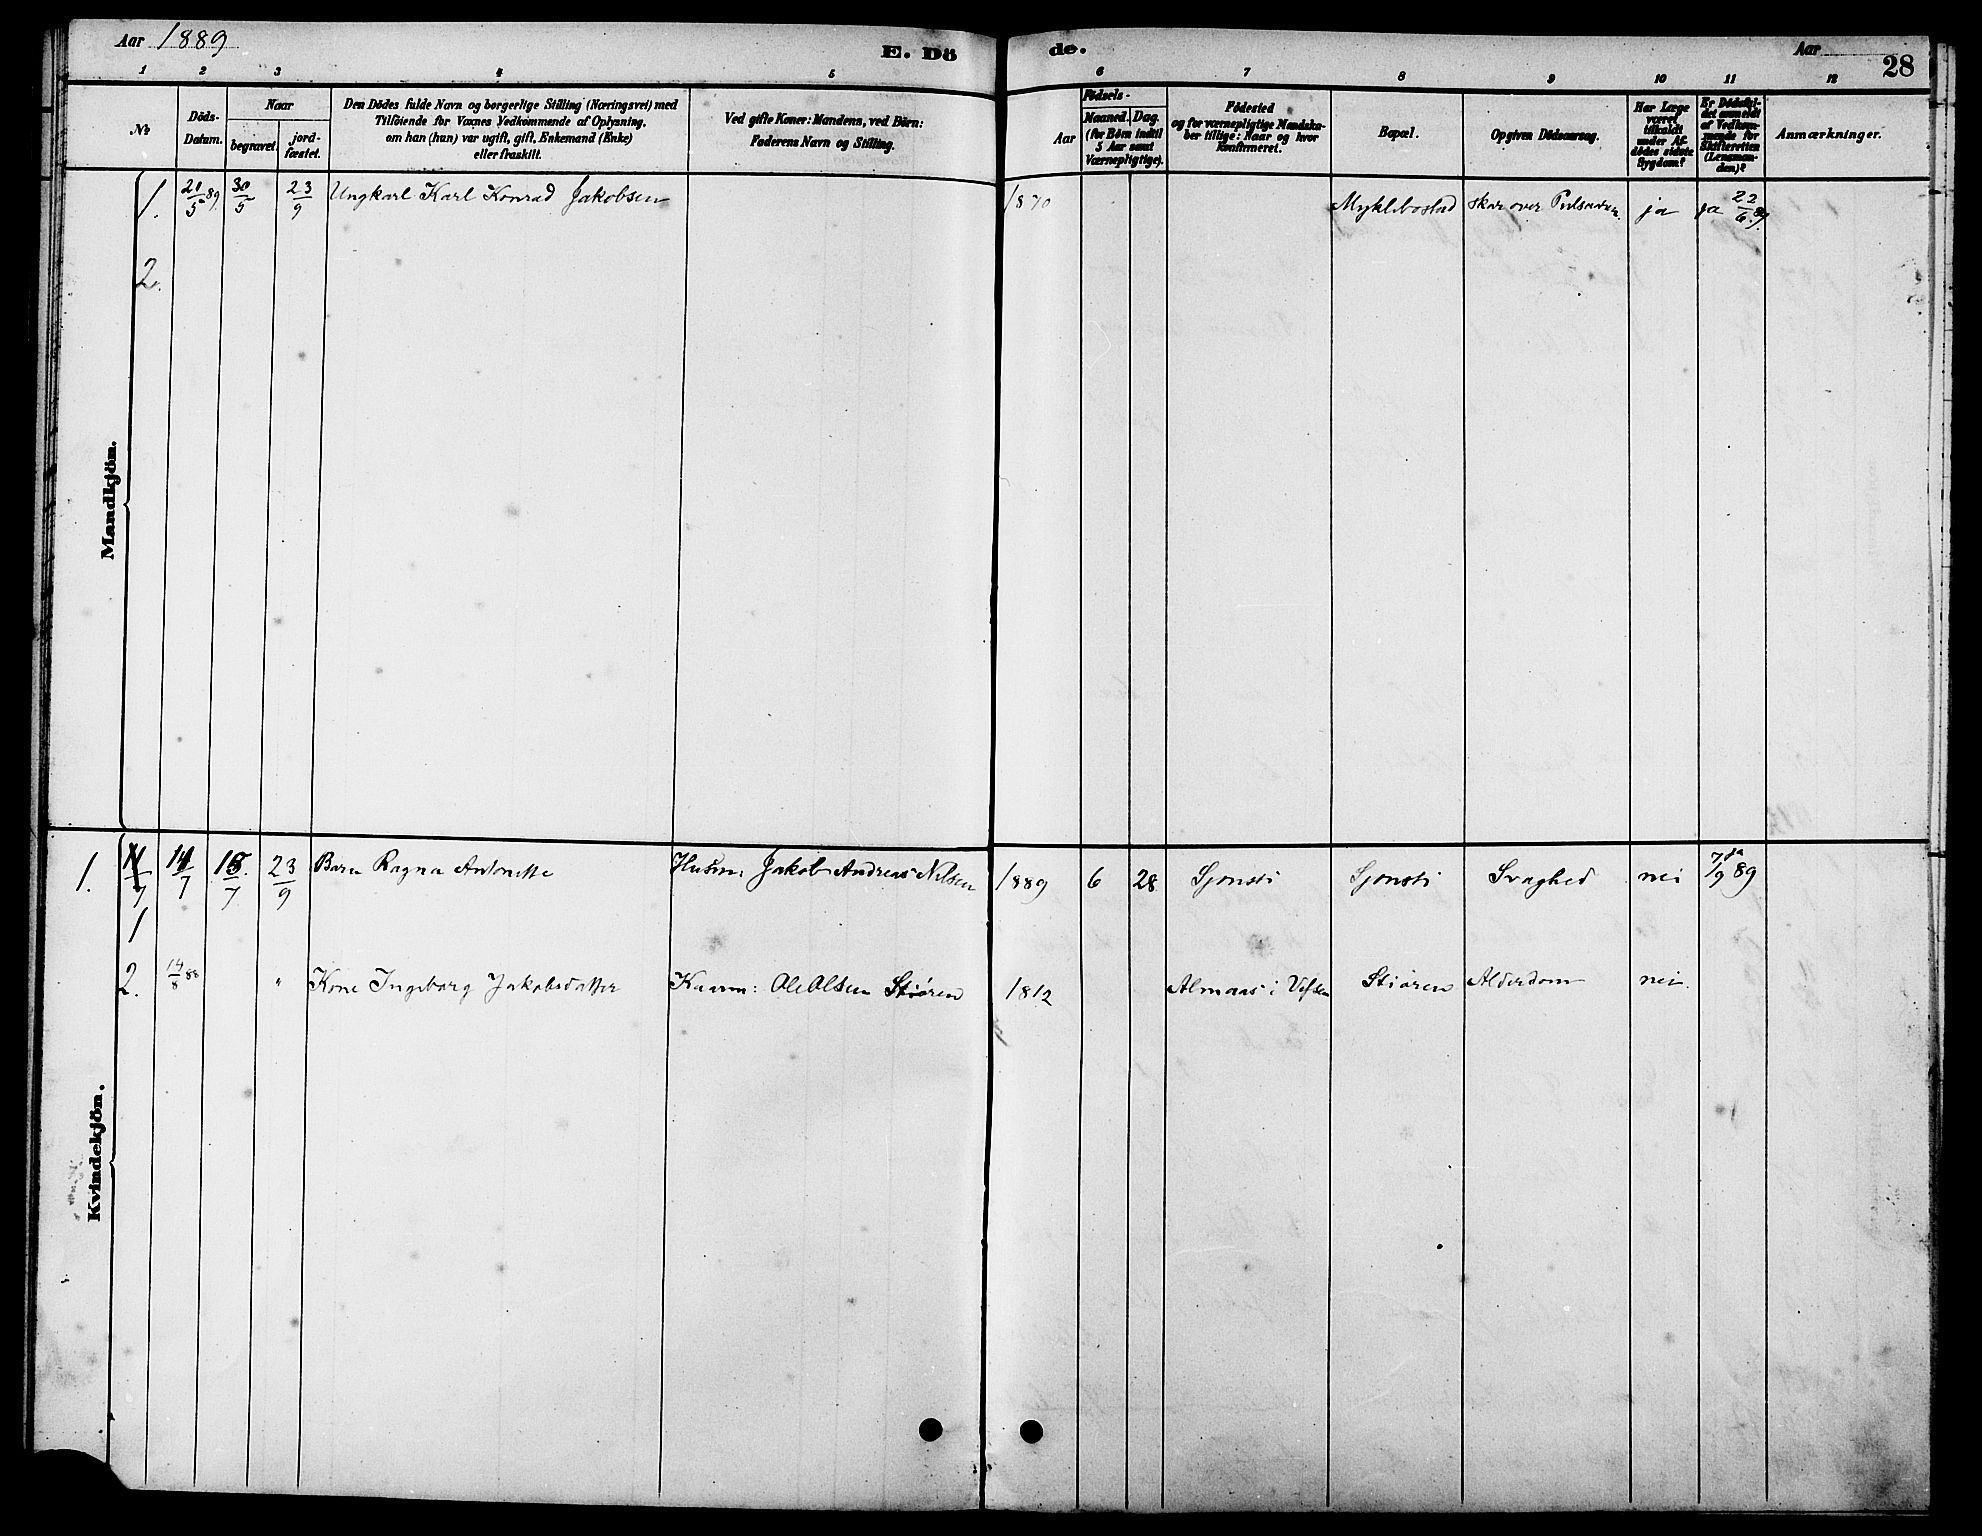 Aar 1889
E. Dö de.
Aar
28
1 2 3 4 5 6 7 8 9 10 11 12
No
Döds-
Datum.
Naar
begravet.
jord-
fæstet.
Den Dödes fulde Navn og borgerlige Stilling (Næringsvei) med
Tilföiende for Voxnes Vedkommende af Oplysning,
om han (hun) var ugift, gift, Enkemand (Enke)
eller fraskilt.
Ved gifte Koner: Mandens, ved Börn:
Faderens Navn og Stilling.
Aar
Födsels-
Maaned. Dag.
(for Börn indtil
5 Aar samt
Værnepligtige).
Födested
og for værnepligtige Mandska-
ber tillige: Naar og hvor
konfirmeret.
Bopæl.
Opgiven Dödsaarsag.
Har Læge
været
tilkaldt
under Af-
dödes sidste
Sygdom?
Er Dödsfal-
det anmeldt
af Vedkom-
mende for
Skifteretten
(Lensman-
den)?
Anmærkninger.
Mandkjön.
1. 5 89. 30/5 23/9 Ungkarl Karl Konrad Jakobsen 1870 Myklebostad skar over ja ja 22/6 89.
2.
Kvindekjön.
1. 14/7 7 23/9 Barn Ragna Antonette Husm: Jakob Andreas Nilsen 1889 6 28 Sjonsti Sjonsti Svaghed nei ja 7/9 89
1
2. 14/8 88 " Kone Ingeborg Jakobsdatter Kaarm: Ole Olsen Stiören 1812 Almaas i Vefsen Stiören Alderdom nei.